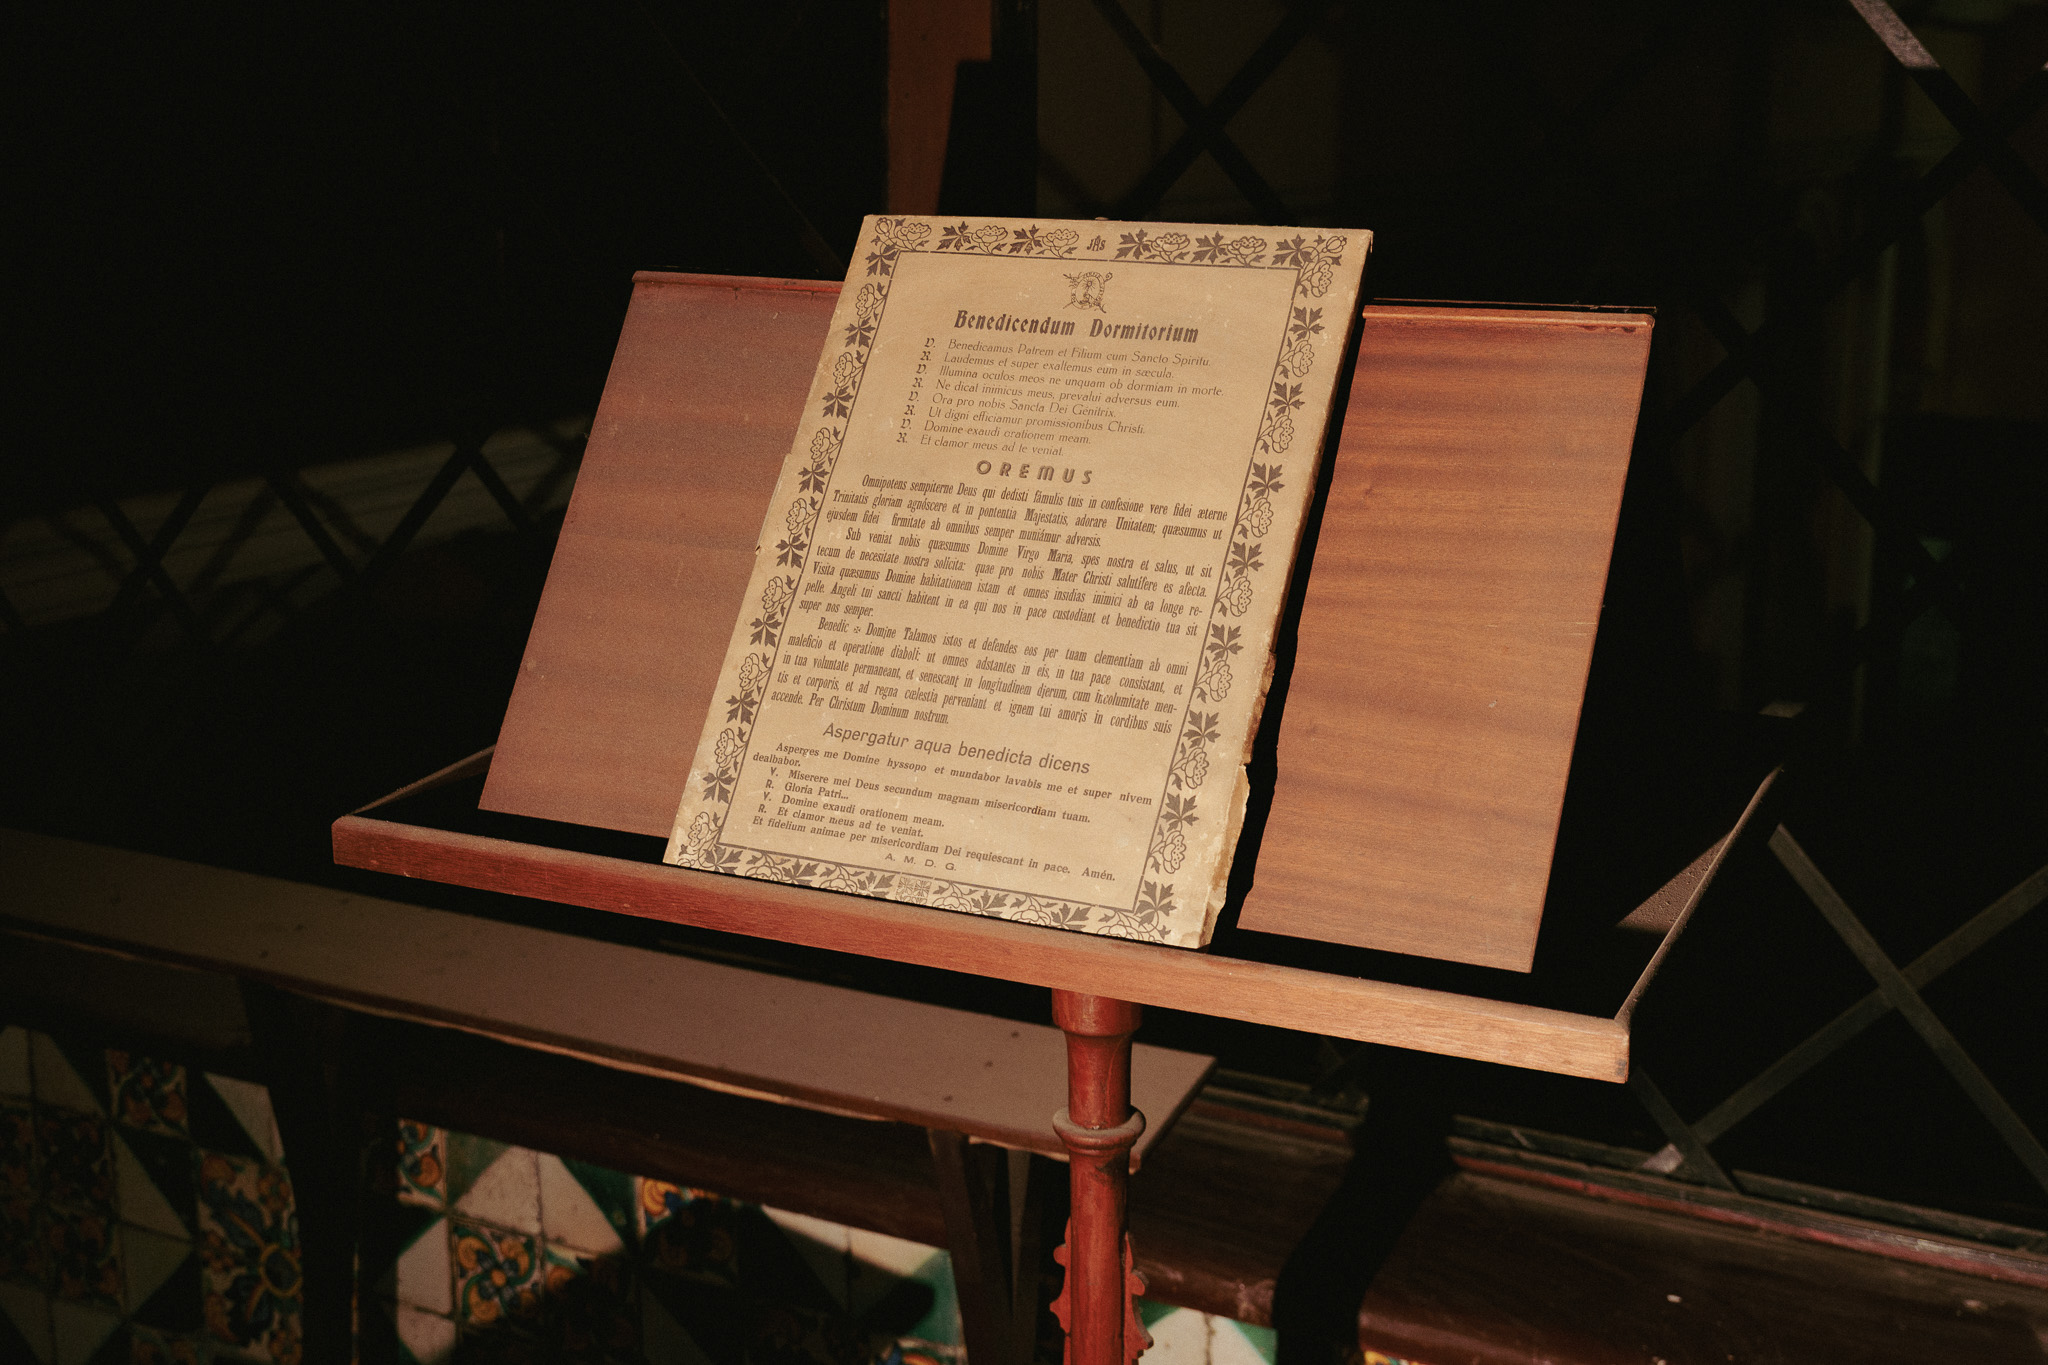 JHS
Benedicendum Dormitorium
V. Benedicamus Patrem et Filium cum Sancto Spiritu.
R. Laudemus et super exaltemus eum in sæcula.
V. Illumina oculos meos ne unquam ob dormiam in morte.
R. Ne dicat inimicus meus, prevalui adversus eum.
V. Ora pro nobis Sancta Dei Génitrix.
R. Ut digni efficiamur promissionibus Christi.
V. Domine exaudi orationem meam.
R. Et clamor meus ad te veniat.
OREMUS
Omnipotens sempiterne Deus qui dedisti fámulis tuis in confesione vere fidei æterne
Trinitatis gloriam agnóscere et in pontentia Majestatis, adorare Unitatem; quæsumus ut
ejusdem fidei firmitate ab omnibus semper muniámur adversis.
Sub veniat nobis quæsumus Domine Virgo Maria, spes nostra et salus, ut sit
tecum de necesitate nostra solícita: quae pro nobis Mater Christi salutífere es afecta.
Visita quæsumus Domine habitationem istam et omnes insidias inimici ab ea longe re-
pelle. Angeli tui sancti habitent in ea qui nos in pace custodiant et benedictio tua sit
super nos semper.
Benedic ✠ Domine Talamos istos et defendes eos per tuam clementiam ab omni
maleficio et operatione diaboli: ut omnes adstantes in eis, in tua pace consistant, et
in tua voluntate permaneant, et senescant in longitudinem djerum, cum incolumitate men-
tis et corporis, et ad regna cœlestia perveniant et ignem tui amoris in cordibus suis
accende. Per Christum Dominum nostrum.
Aspergatur aqua benedicta dicens
Asperges me Domine hyssopo et mundabor lavabis me et super nivem
dealbabor.
V. Miserere mei Deus secundum magnam misericordiam tuam.
R. Gloria Patri...
V. Domine exaudi orationem meam.
R. Et clamor meus ad te veniat.
Et fidelium animae per misericordiam Dei requiescant in pace. Amén.
A. M. D. G.